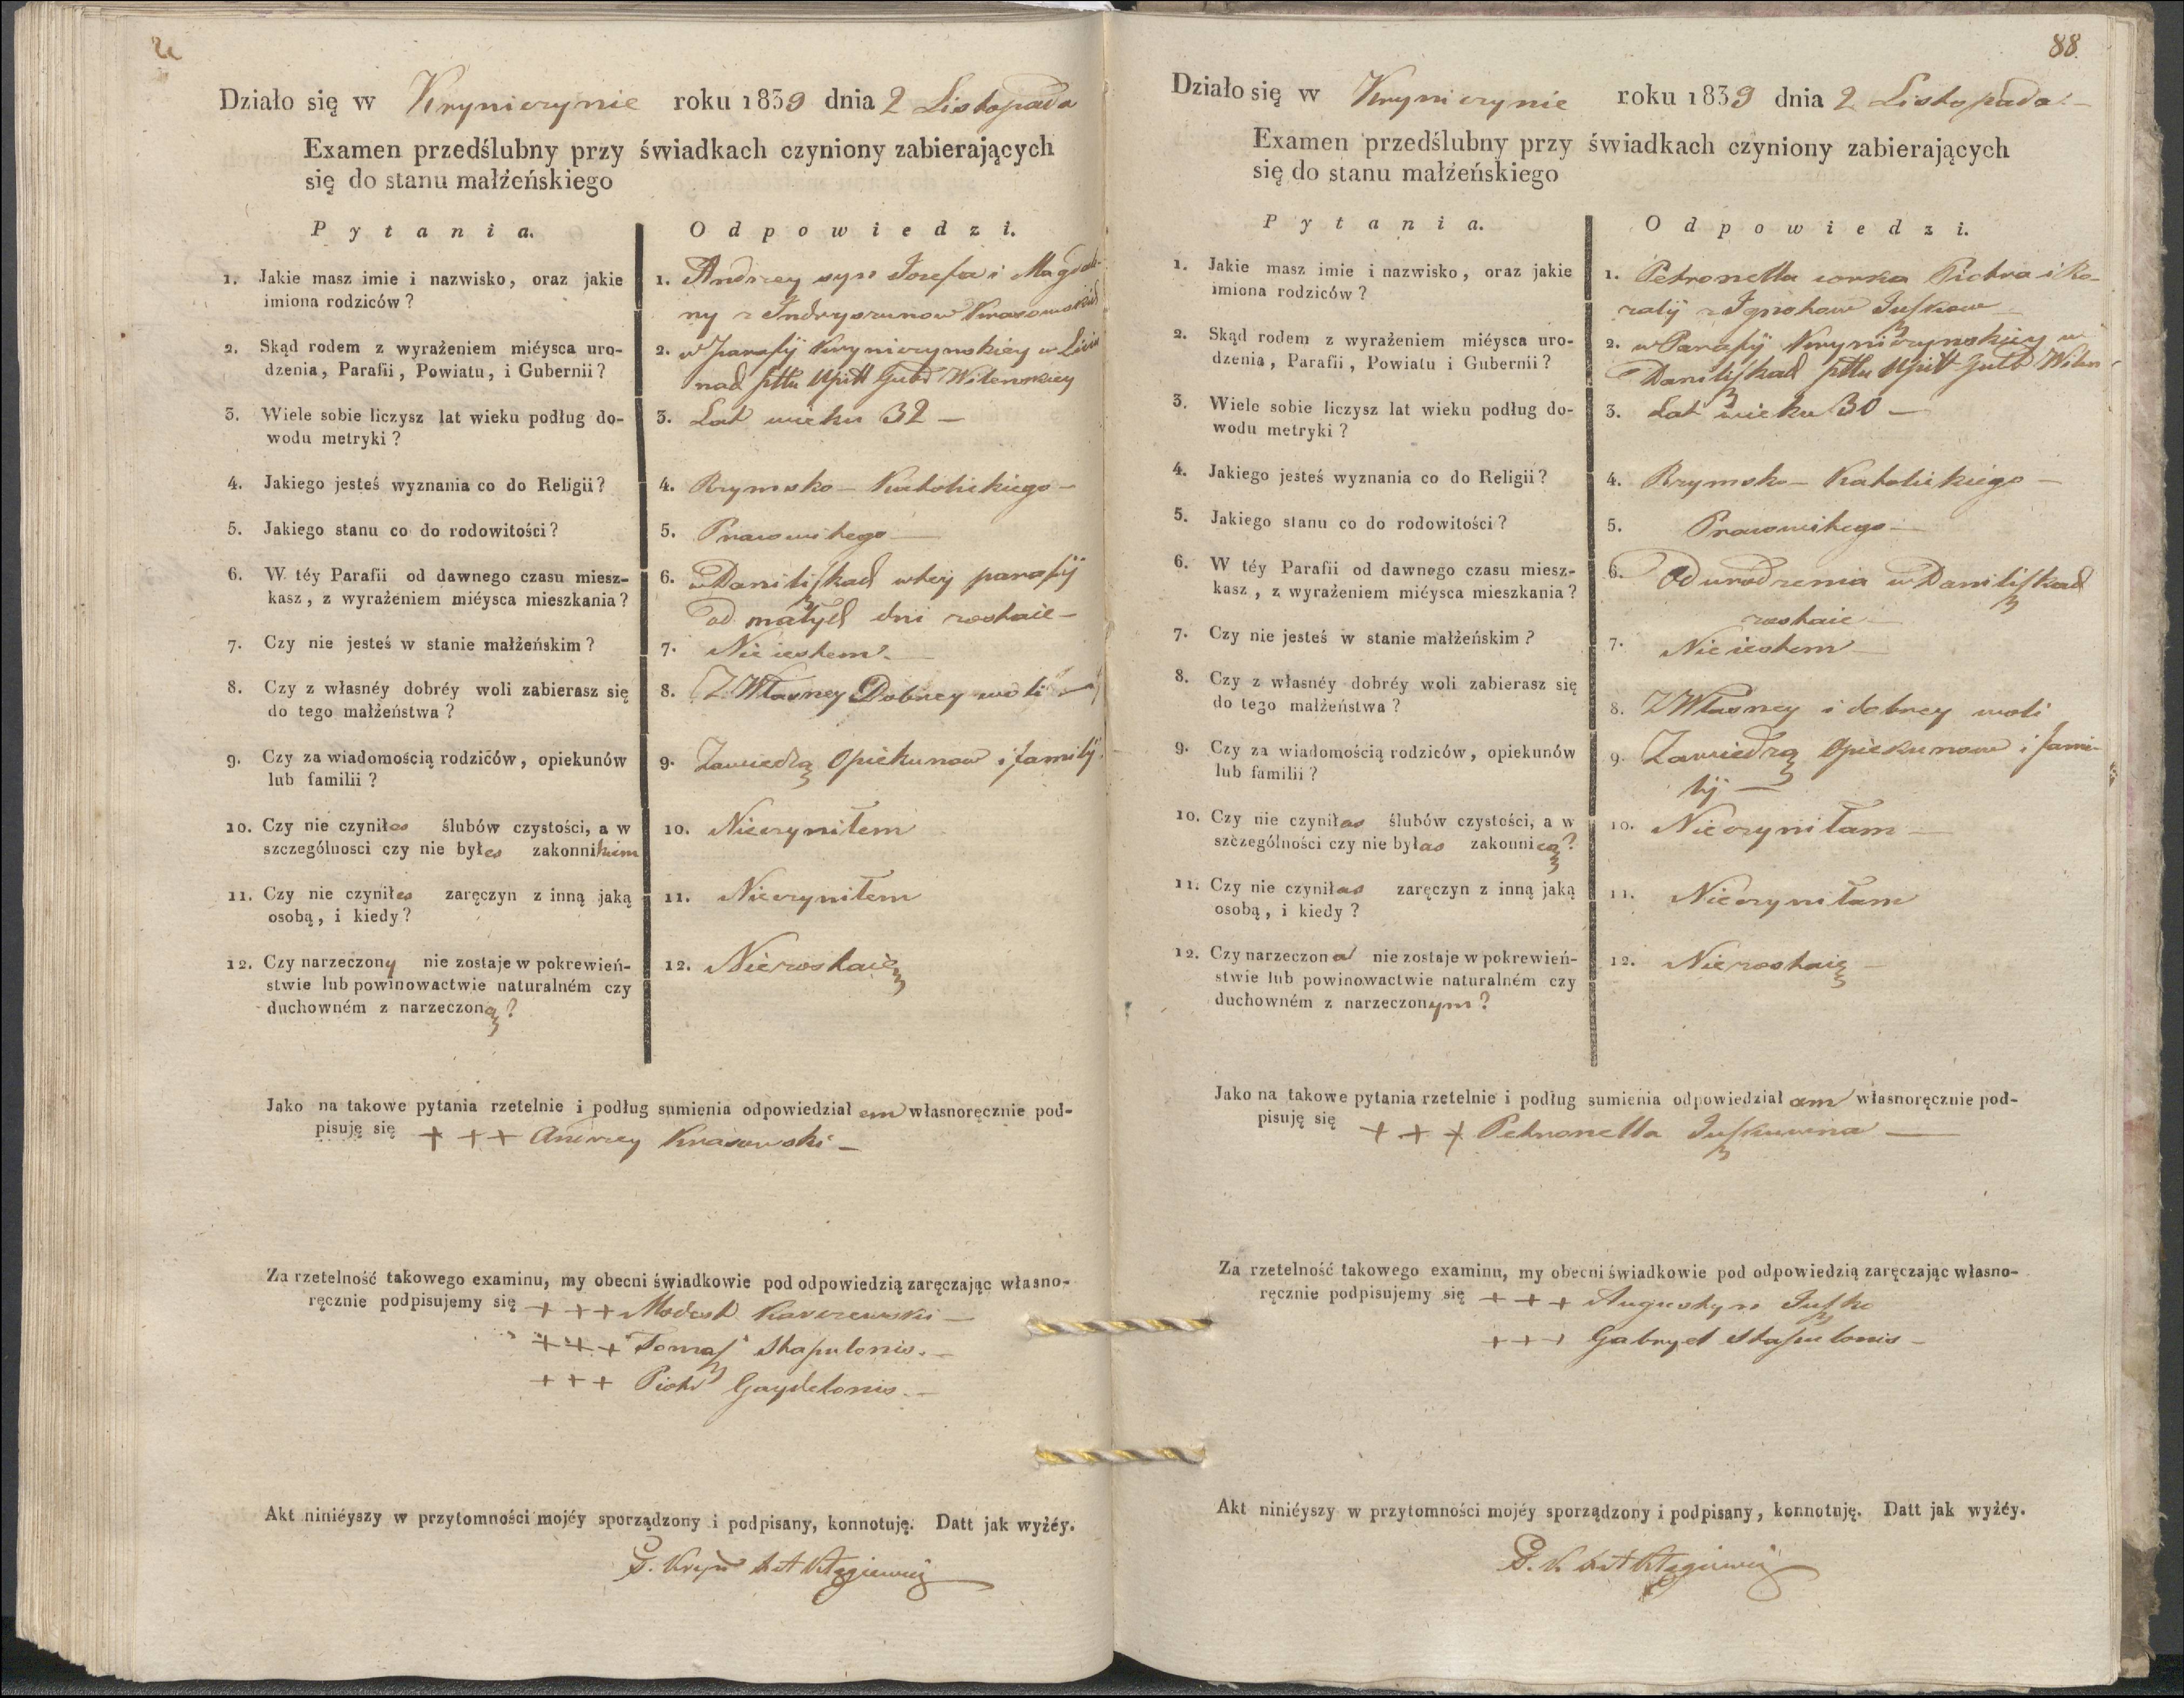 Działo się w Kryniczynie roku 1839 dnia 2 Listopada
Examen przedślubny przy świadkach czyniony zabierających
się do stanu małżeńskiego
Pytania. Odpowiedzi.
1. Jakie masz imie i nazwisko, oraz jakie
imiona rodziców?
1. Andrzey syn Jozefa i Magdale-
ny z Krasowskich
2. Skąd rodem z wyrażeniem miéysca uro-
dzenia, Parafii, Powiatu, i Gubernii?
2. w parafij Kryniczynskiey w
pttu Upitt Gubr Wilenskiey
3. Wiele sobie liczysz lat wieku podług do-
wodu metryki?
3. Lat wieku 32 —
4. Jakiego jesteś wyznania co do Religii?
4. Rzymsko – Katolickiego –
5. Jakiego stanu co do rodowitości?
5. Prawowitego —
6. W téy Parafii od dawnego czasu miesz-
kasz, z wyrażeniem miéysca mieszkania?
6. w Daniliszkach wtey parafij
od małych dni zostaie –
7. Czy nie jesteś w stanie małżeńskim?
7. Nie iestem. —
8. Czy z własnéy dobréy woli zabierasz się
do tego małżeństwa?
8. Z Własney Dobrey woli —
9. Czy za wiadomością rodziców, opiekunów
lub familii?
9. Zawiedzą Opiekunow i familij.
10. Czy nie czyniłes ślubów czystości, a w
szczególnosci czy nie byłes zakonnikiem
10. Nieczyniłem
11. Czy nie czyniłes zaręczyn z inną jaką
osobą, i kiedy?
11. Nieczyniłem
12. Czy narzeczony nie zostaje w pokrewień-
stwie lub powinowactwie naturalném czy
duchowném z narzeczoną?
12. Niezostaię
Jako na takowe pytania rzetelnie i podług sumienia odpowiedziałem własnoręcznie pod-
pisuję się + + + Andrzey Krasowski –
Za rzetelność takowego examinu, my obecni świadkowie pod odpowiedzią zaręczając własno-
ręcznie podpisujemy się + + + Modest Karczewski –
+ + + Tomasz Skapulonis. –
+ + + Piotr Gaydelonis. –
Akt niniéyszy w przytomności mojéy sporządzony i podpisany, konnotuję. Datt jak wyżéy.
88.
Działo się w Kryniczynie roku 1839 dnia 2 Listopada. –
Examen przedślubny przy świadkach czyniony zabierających
się do stanu małżeńskiego
Pytania. Odpowiedzi.
1. Jakie masz imie i nazwisko, oraz jakie
imiona rodziców?
1. Petronella corka Piotra i Ro-
zalij z Juszkow
2. Skąd rodem z wyrażeniem miéysca uro-
dzenia, Parafii, Powiatu i Gubernii?
2. w Parafij Kryniczynskiey w
Daniliszkach pttu Upitt Gubr Wilen
3. Wiele sobie liczysz lat wieku podług do-
wodu metryki?
3. Lat wieku 30 —
4. Jakiego jesteś wyznania co do Religii?
4. Rzymsko – Katolickiego —
5. Jakiego stanu co do rodowitości?
5. Prawowitego —
6. W téy Parafii od dawnego czasu miesz-
kasz, z wyrażeniem miéysca mieszkania?
6. Od urodzenia w Daniliszkach
zostaie
7. Czy nie jesteś w stanie małżeńskim?
7. Nie iestem —
8. Czy z własnéy dobréy woli zabierasz się
do tego małżeństwa?
8. Z Własney i dobrey woli
9. Czy za wiadomością rodziców, opiekunów
lub familii?
9. Zawiedzą Opiekunow i fami-
lij —
10. Czy nie czyniłas ślubów czystości, a w
szczególności czy nie byłas zakonnicą?
10. Nieczyniłam —
11. Czy nie czyniłas zaręczyn z inną jaką
osobą, i kiedy?
11. Nieczyniłam
12. Czy narzeczona nie zostaje w pokrewień-
stwie lub powinowactwie naturalném czy
duchowném z narzeczonym?
12. Niezostaię —
Jako na takowe pytania rzetelnie i podług sumienia odpowiedziałam własnoręcznie pod-
pisuję się + + + Petronella Juszkuwna —
Za rzetelność takowego examinu, my obecni świadkowie pod odpowiedzią zaręczając własno-
ręcznie podpisujemy się + + + Augustyn Juszko
+ + + Gabryel Skapulonis –
Akt niniéyszy w przytomności mojéy sporządzony i podpisany, konnotuję. Datt jak wyżéy.